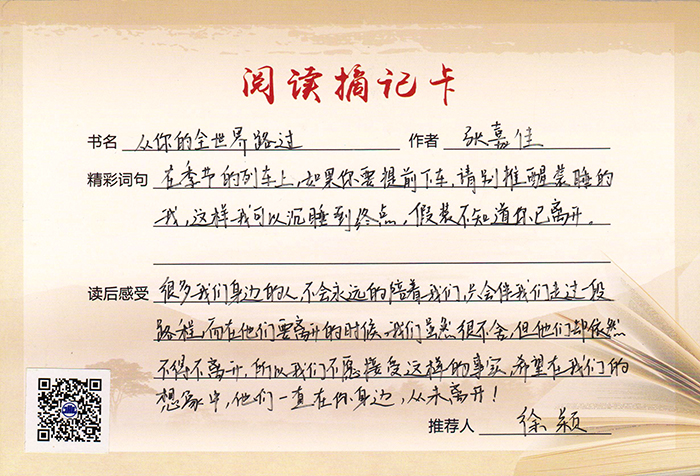 阅读摘记卡
书名 从你的全世界路过 作者 张嘉佳
精彩词句 在季节的列车上,如果你要提前下车,请别推醒装睡的
我,这样我可以沉睡到终点,假装不知道你已离开。
读后感受 很多我们身边的人,不会永远的陪着我们,只会伴我们走过一段
路程,而在他们要离开的时候,我们虽然很不舍,但他们却依然
不得不离开,所以我们不愿接受这样的事实,希望在我们的
想象中,他们一直在你身边,从未离开!
推荐人 徐颖